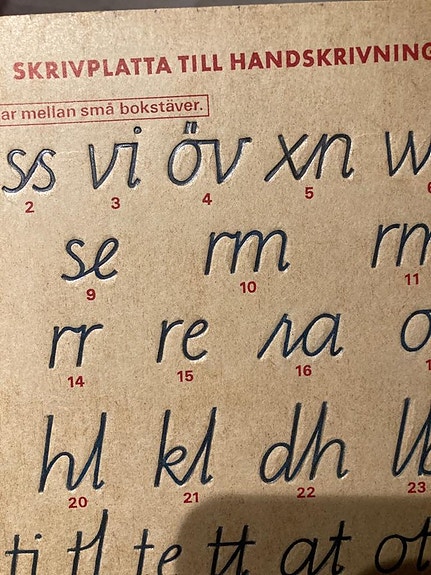 SKRIVPLATTA TILL HANDSKRIVNING
ar mellan små bokstäver.
ss vi öv xn w
2 3 4 5 6
se rm rm
9 10 11
rr re ra o
14 15 16 1
hl kl dh lb
20 21 22 23
ti tl te tt at ot